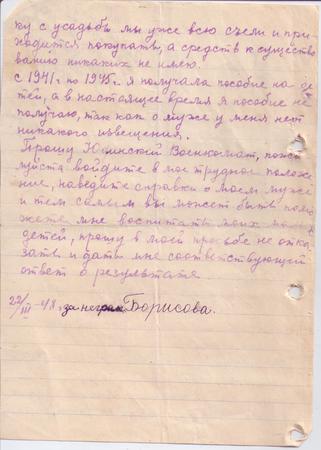 ку с усадьбы мы уже всю съели и при-
ходится покупать, а средств к существо
ванию никаких не имею.
С 1941г по 1945г. я получала пособие на де
тей, а в настоящее время я пособие не
получаю, так как о муже у меня нет
никакого извещения.
Прошу Юсинский Военкомат, пожа
луйста войдите в мое трудное положе
ние, наведите справки о моем муже
и тем самым вы может быть помо
жете мне воспитать моих
детей, прошу в моей просьбе не отка
зать и дать мне соответствующий
ответ о результате
22/III-48. за неграм Борисова.